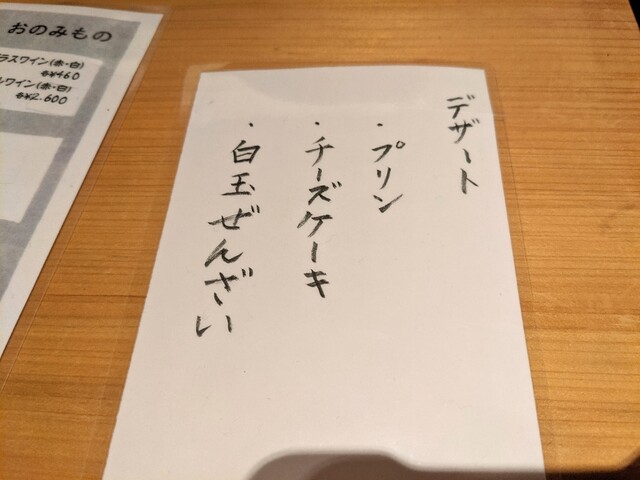 デザート
・プリン
・チーズケーキ
・白玉ぜんざい
おのみもの
ラスワイン(赤・白)
各¥460
ルワイン(赤・白)
各¥2.600